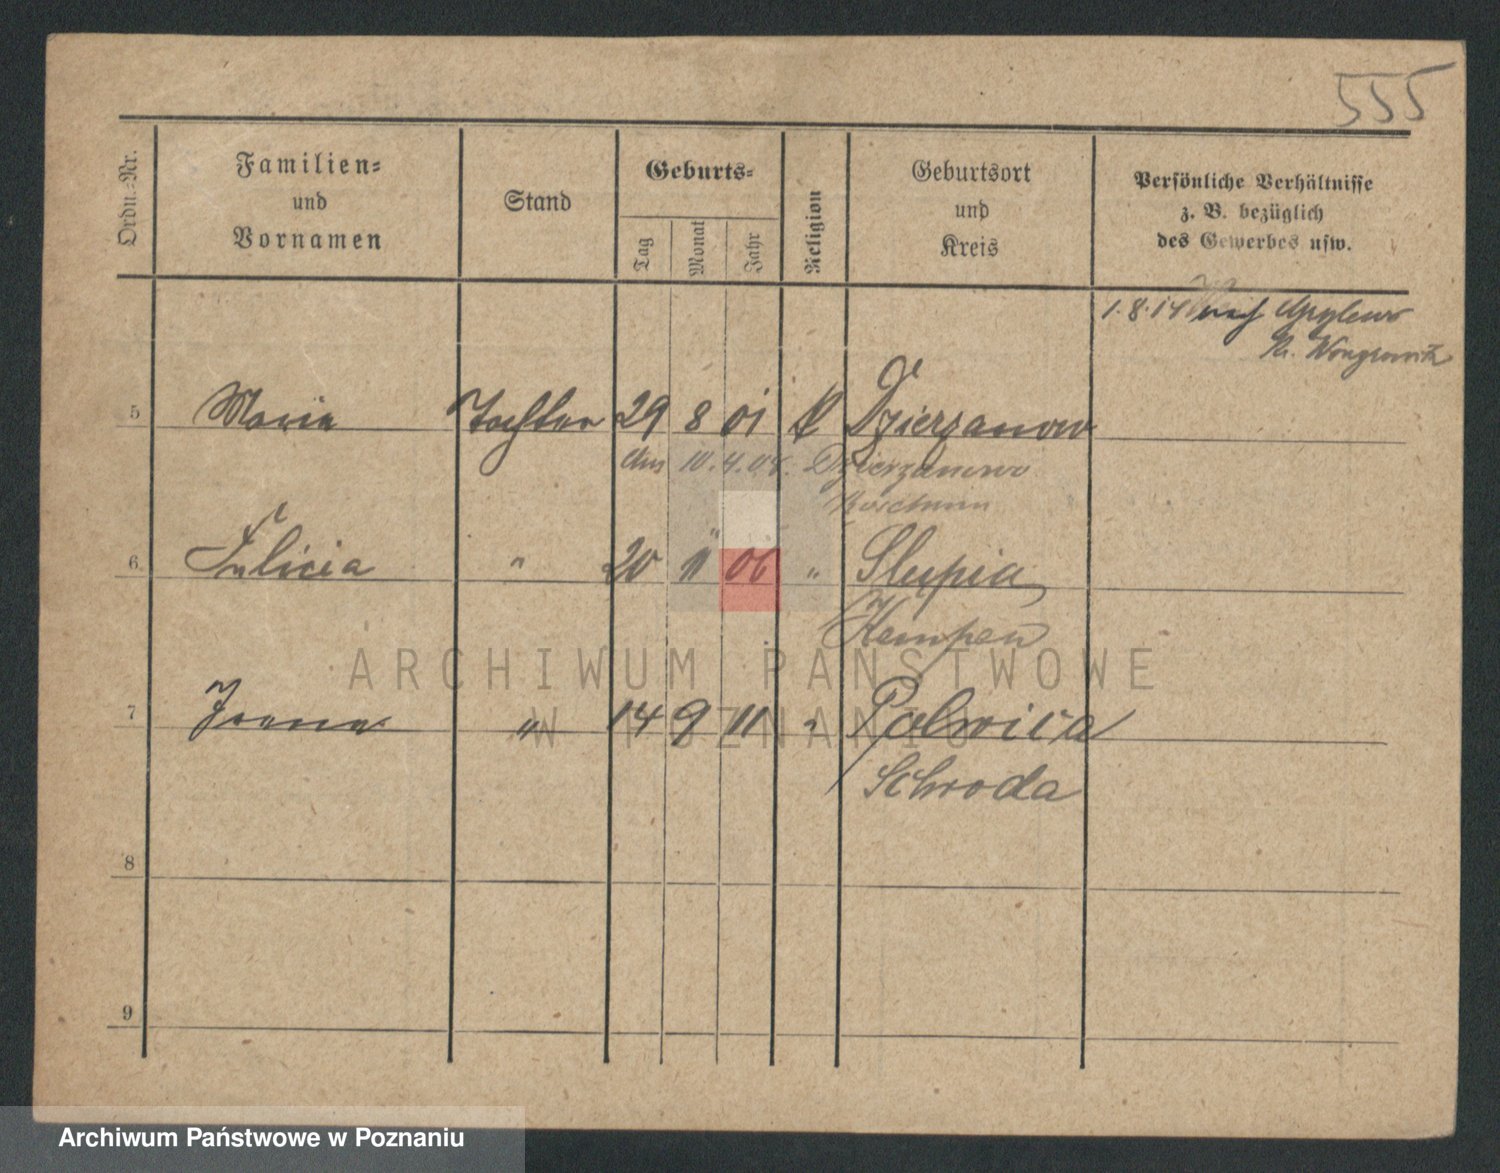 555
Ordn.-Nr.
Familien=
und
Vornamen
Stand
Geburts=
Tag
Monat
Jahr
Religion
Geburtsort
und
Kreis
Persönliche Verhältnisse
z. B. bezüglich
des Gewerbes usw.
1.8.14 nach
Kr. Wongrowitz
5 Maria Tochter 29 8 01 k Dzierzanowo
10.4.04. Dzierzanowo
Koschmin
6 Felicia " 20 11 06 " Slupia
Kempen
7 Irena " 14 9 11 " Polwica
Schroda
8
9
ARCHIWUM PAŃSTWOWE
W POZNANIU
Archiwum Państwowe w Poznaniu